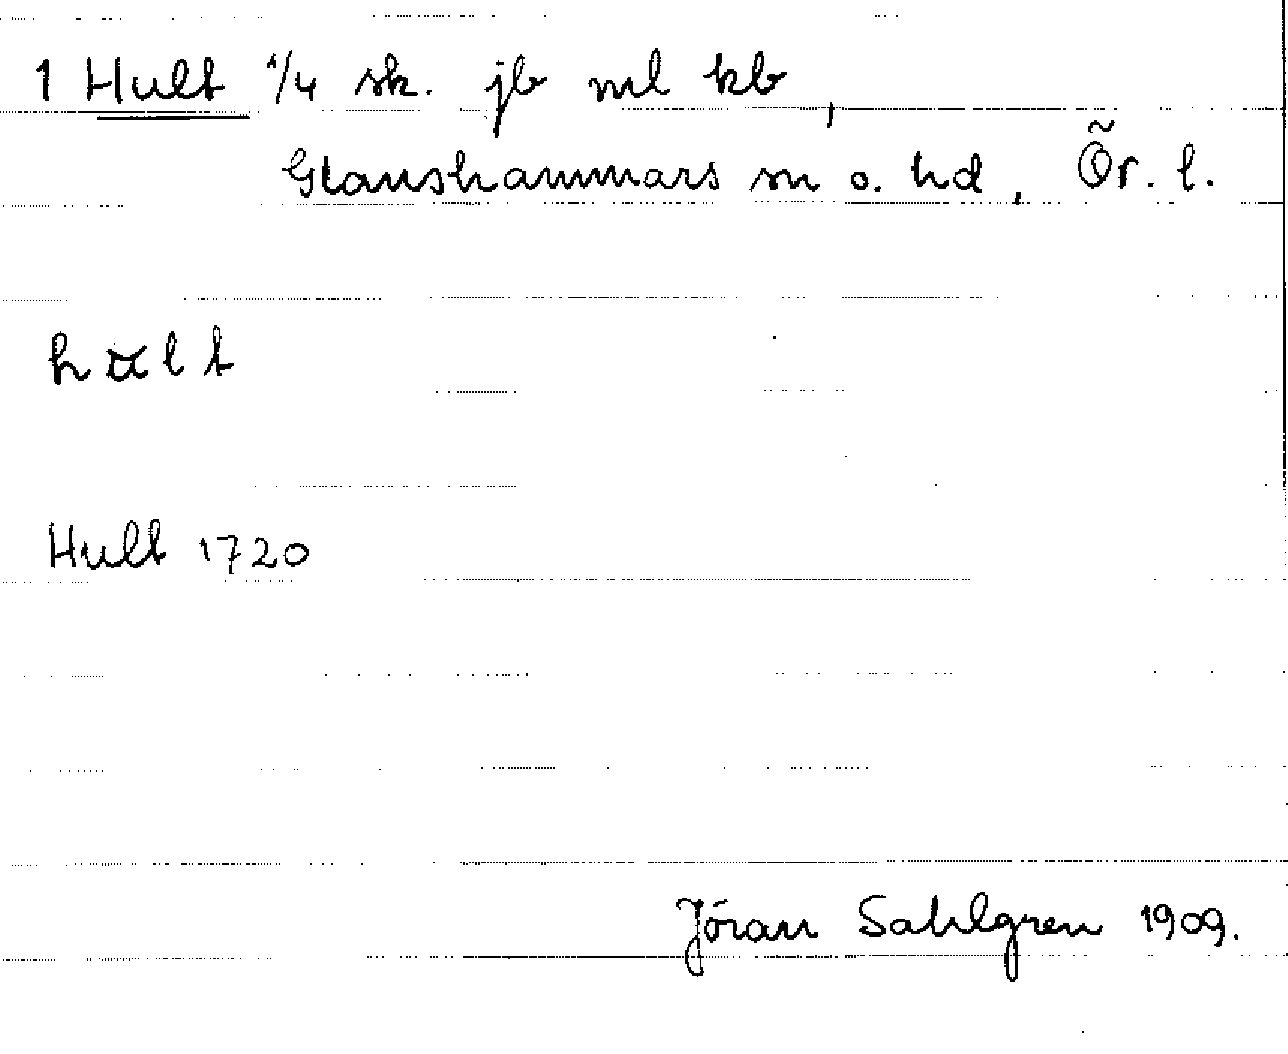 1 Hult 1/4 sk. jb ml kb,
Glanshammars sn o. hd, Ör. l.
hɯlt
Hult 1720
Jöran Sahlgren 1909.